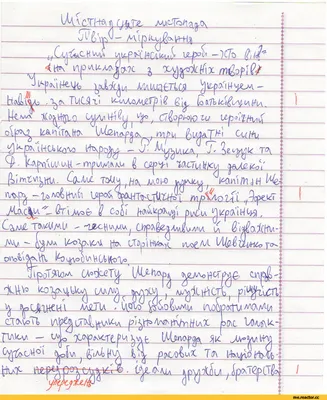 Шістнадцяте листопада
Твір - міркування
„Сучасний український герой - хто він?
на прикладах з художніх творів"
Українець завжди лишається українцем -
навіть за тисячі кілометрів від батьківщини.
Нема жодного сумніву, що, створюючи героїчний
образ капітана Шепарда, три видатні сини
українського народу - Г. Музика, Г. Зещук та
Д. Карпишин - тримали в серці частинку далекої
Вітчизни. Саме тому, на мою думку, капітан Ше-
пард - головний герой фантастичної трилогії „Эфект
Маси" - втілює в собі найкращі риси українця.
Саме такими - чесними, справедливими й відважни-
ми - були козаки на сторінках поем Шевченка та
оповідань Коцюбинського.
Протягом сюжету Шепард демонструє справ-
жню козацьку силу духу, мужність, рішучість
у досягненні мети. Його бойовими побратимами
стають представники різноманітних рас галак-
тики - що характеризує Шепарда як людину
сучасної доби, вільну від расових та національ-
них передрозсудків. Ідеали дружби, братерства
упереджень
I
I
I
me.reactor.cc